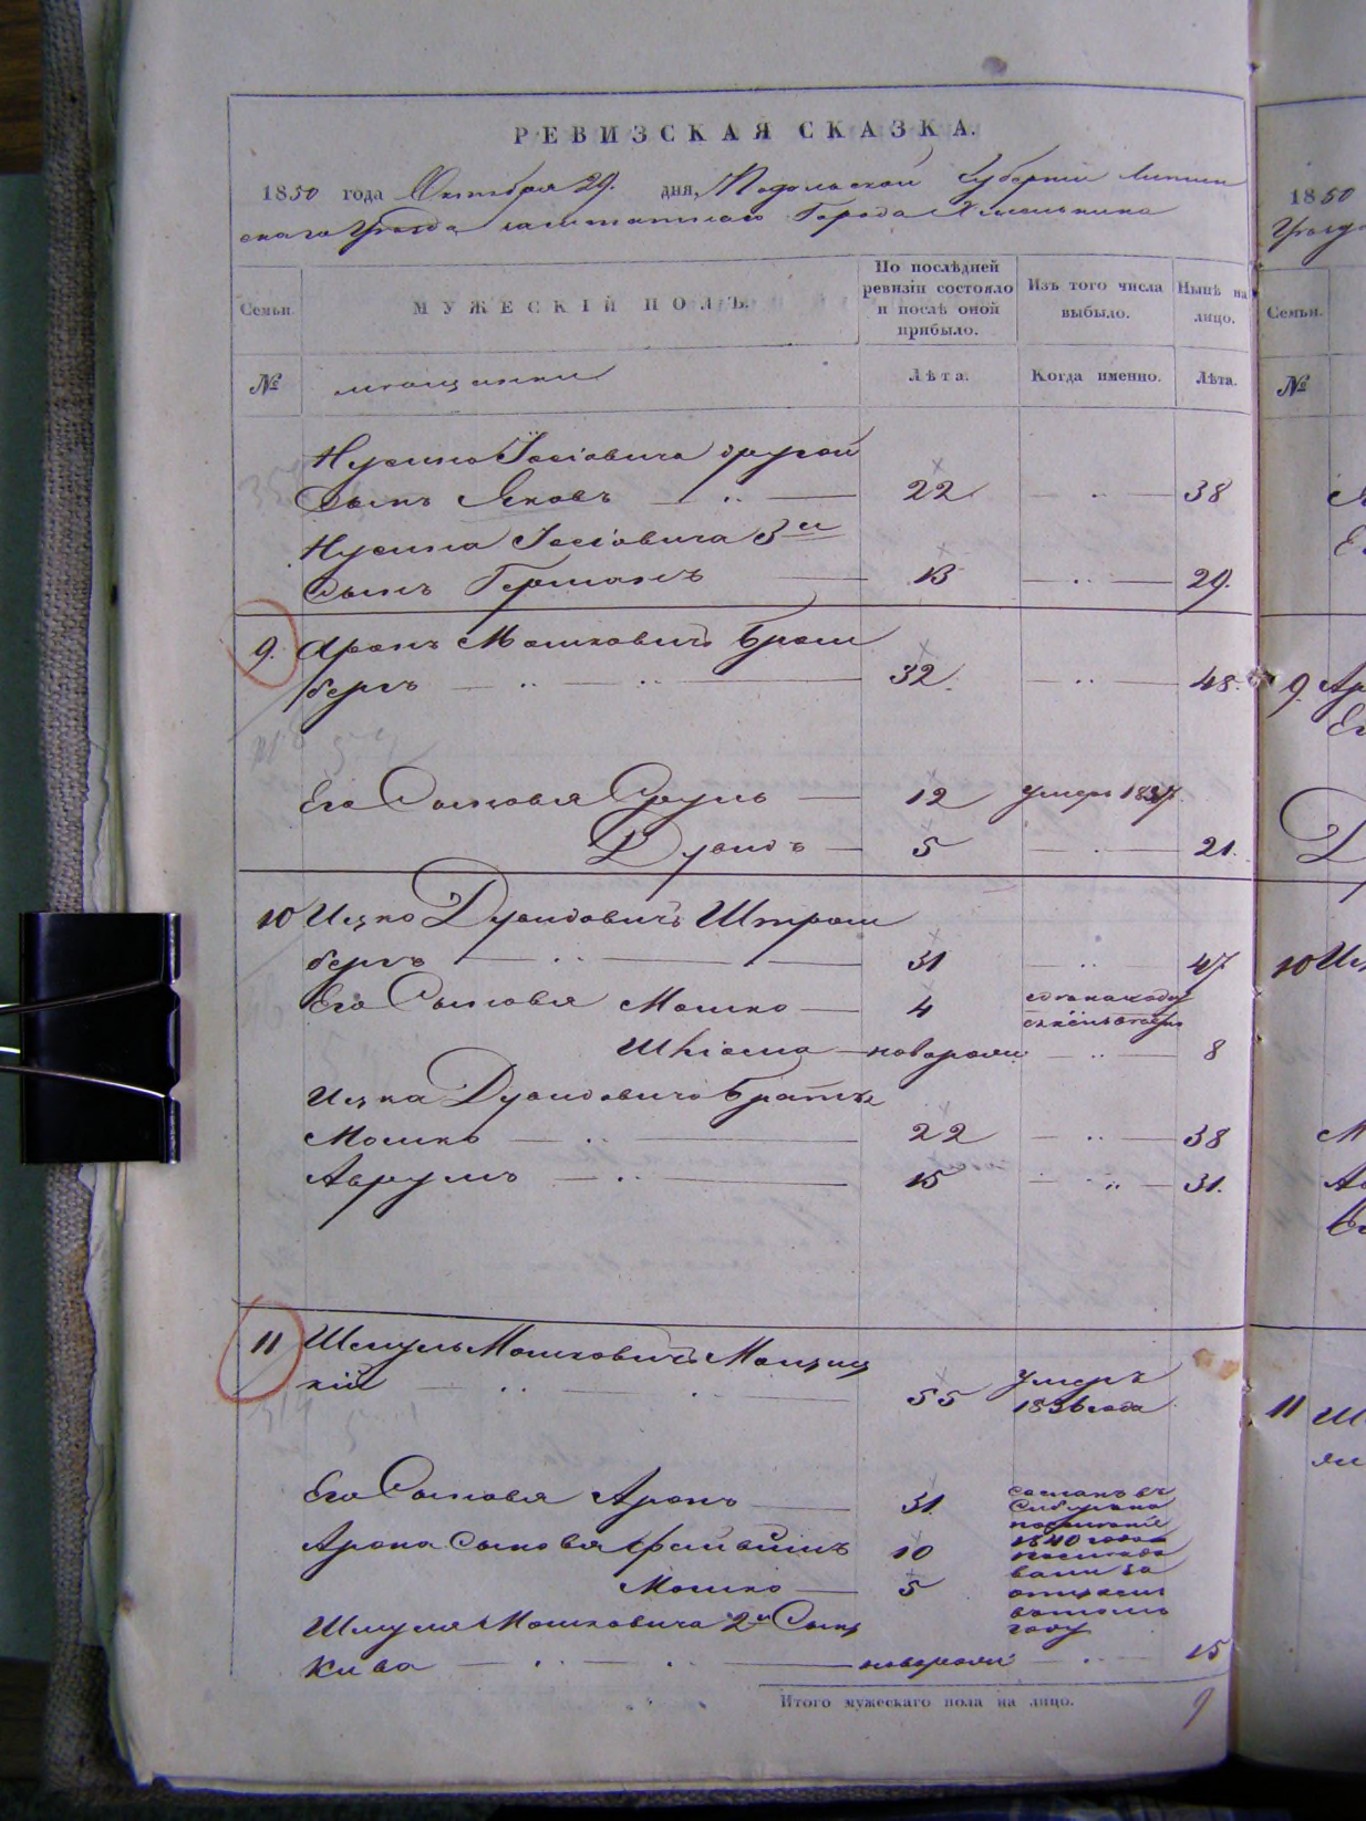 РЕВИЗСКАЯ СКАЗКА.
1850 года Октября 29. дня, Подольской Губернии Литин
скаго Уезда заштатнаго Города Хмельника
Семьи.
МУЖЕСКІЙ ПОЛЪ.
По послѣдней ревизіи состояло и послѣ оной прибыло.
Изъ того числа выбыло.
Нынѣ на лицо.
№
мещанини
Лѣта.
Когда именно.
Лѣта.
Нусина Іосіовича другой
Сынъ Яковъ 22 38
Нусина Іосіовича 3й
Сынъ Германъ 13 29.
9. Аронъ Мошковичъ Брон
бергъ 32. 48.
Его Сыновья Сруль 12 умеръ 1837.
Дувидъ 5 21.
10 Ицко Дувидовичъ Штром
бергъ 31 47
Его Сыновья Мошко 4
Шліома новорожд 8
Ицка Дувидовича Братья
Мошко 22 38
Аврумъ 15 31.
11 Шмуль Мошковичъ
кій 55 умеръ
1836 года
Его Сыновья Аронъ 31. сосланъ въ
Сибирь на
поселеніе
Арона сыновья Файвишъ 10 1840 года
Мошко 5
Шмуля Мошковича 2й Сынъ
году
Кива новорожд 15
Итого мужескаго пола на лицо. 9
1850
Семьи.
№
9. Ар
10 Иц
11 Ш